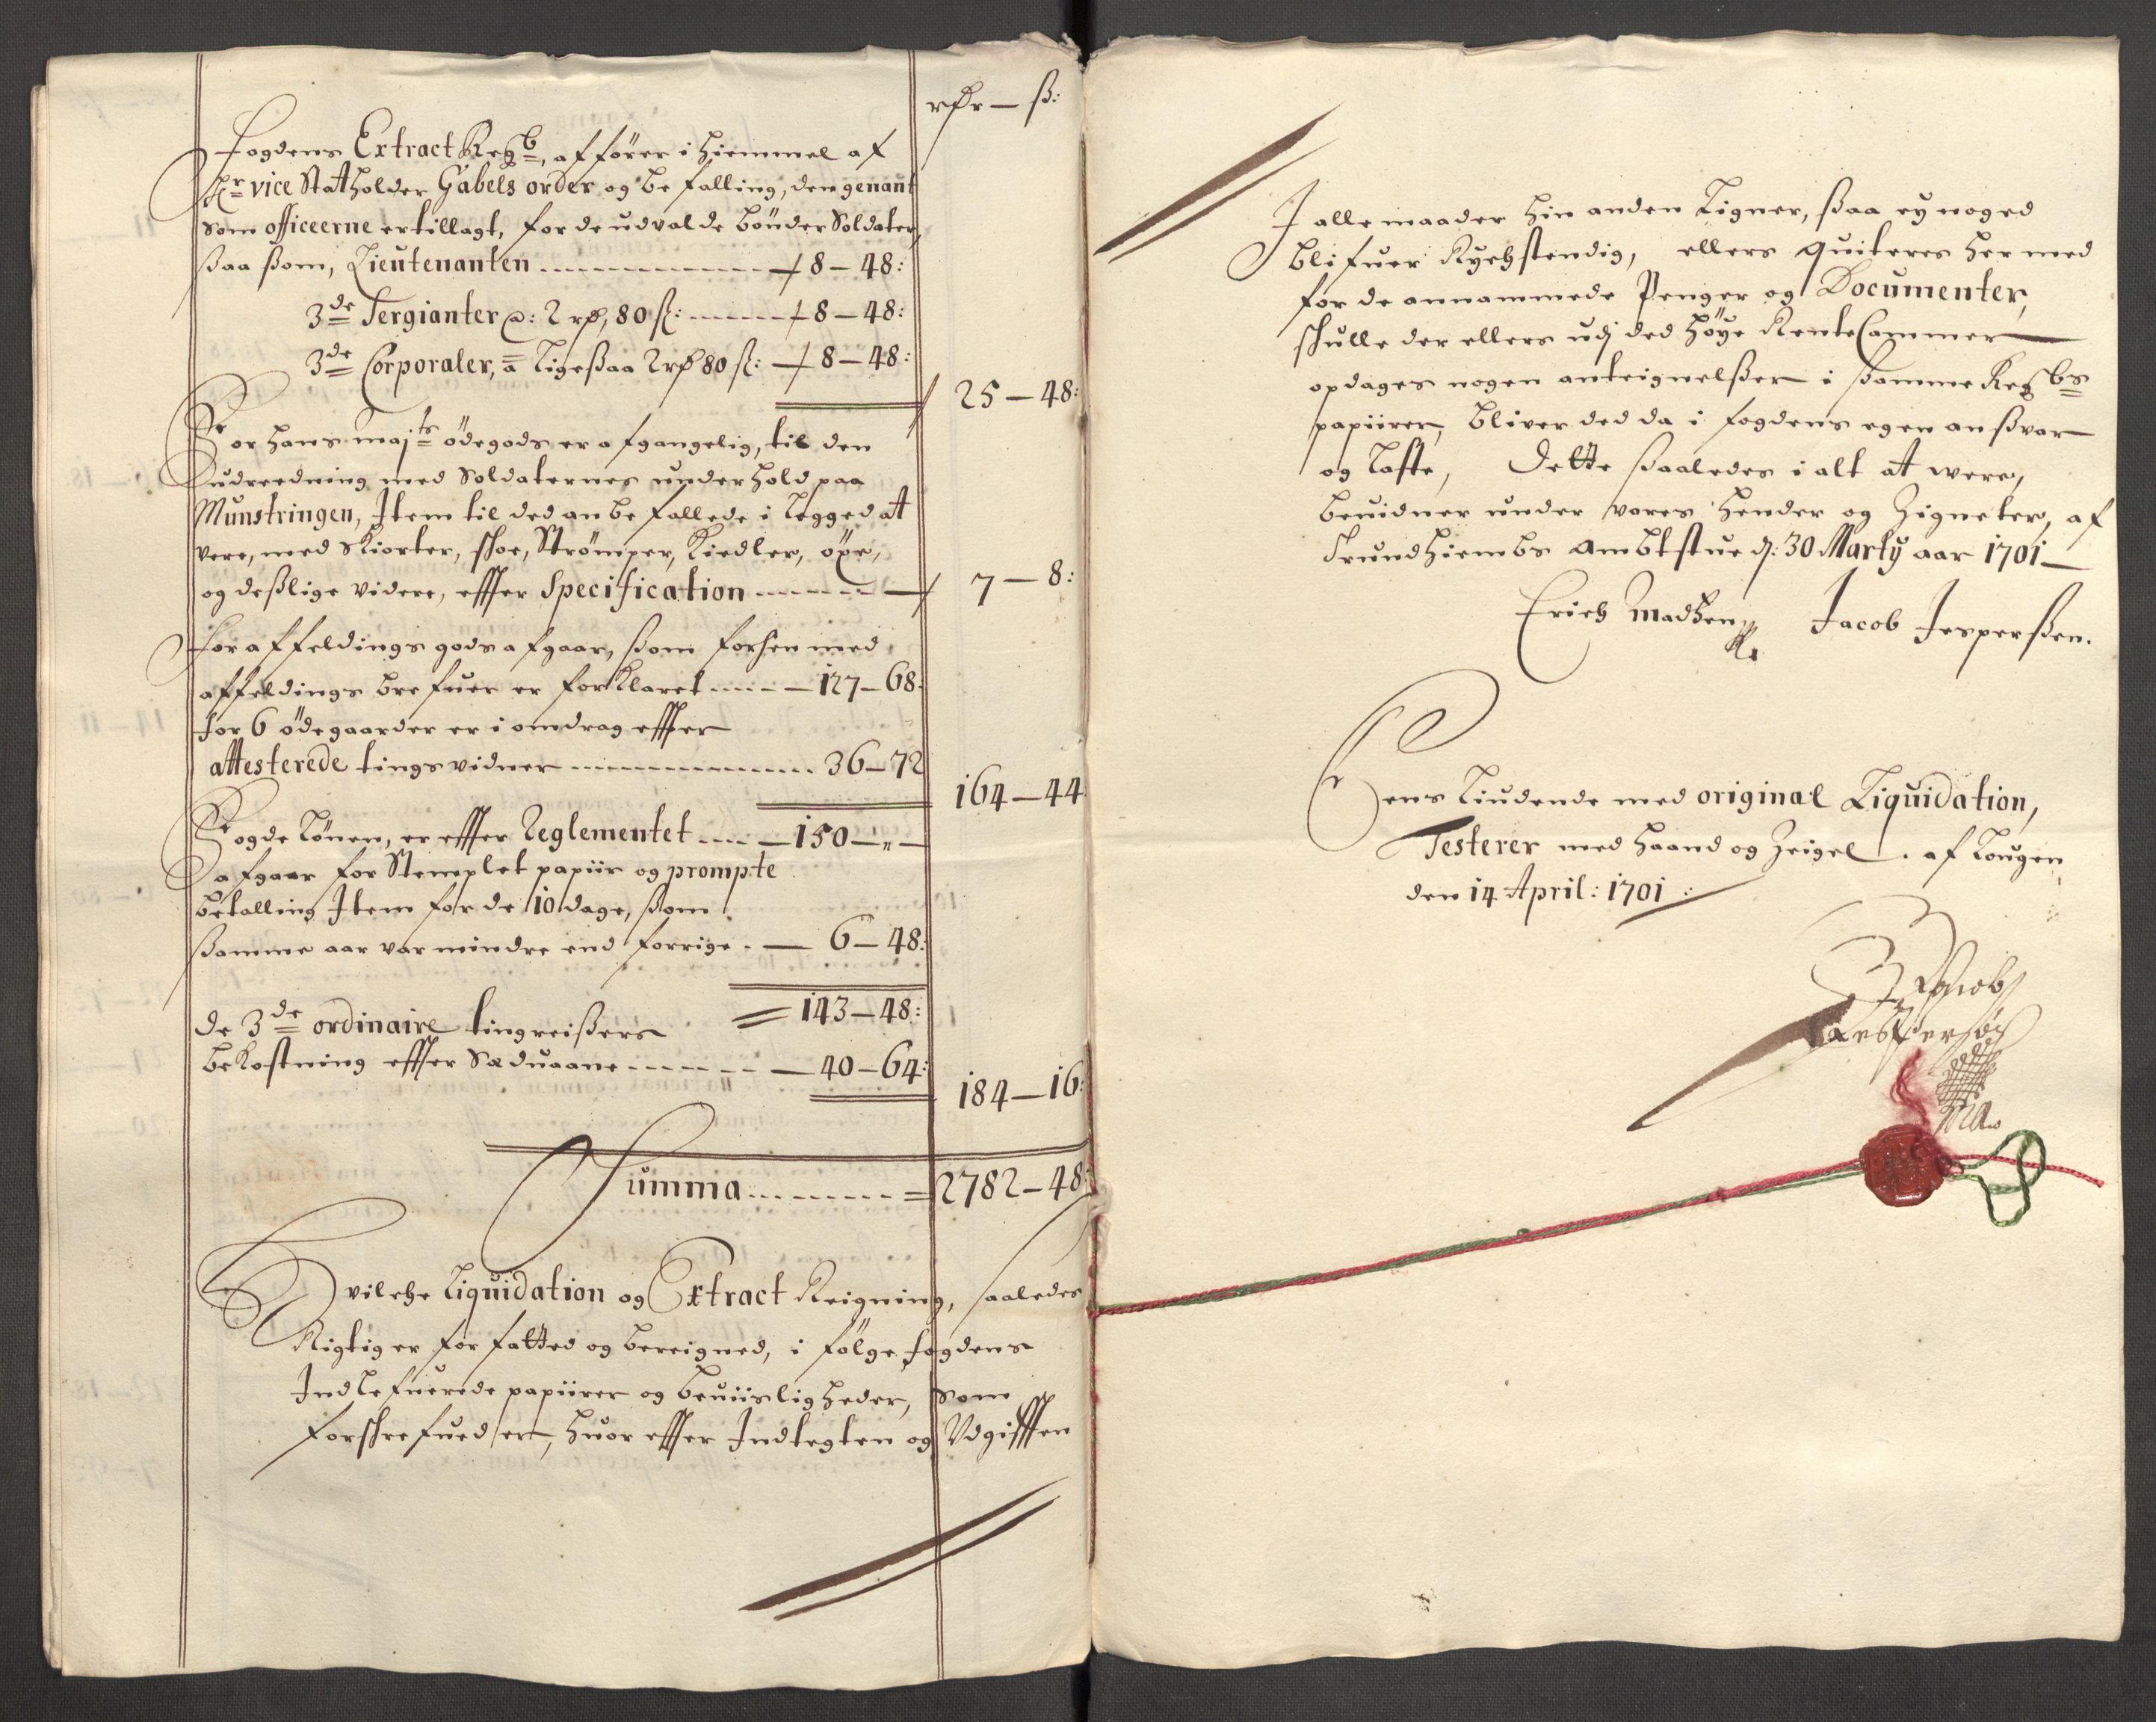 rdr — ß:
Fogdens Extract Regb, afförer i hiemmel af
Hr vice Statholder Gabels order og befalling, den genant
som officeerne ertillagt, for de udvalde bönder Soldater,
ßaa ßom, Lieutenanten ---------- 8–48:
3de Sergianter @: 2 rd, 80 ß: ------ 8–48:
3de Corporaler, a ligeßaa 2 rd 80 ß: – 8–48:
25–48:
For hans majts ödegods er afgangelig, til den
udreedning med Soldaternes underhold paa
Munstringen, Item til ded anbefallede i Legged at
vere, med Skiorter, skoe, Strömper, Kiedler, öxe,
og deßlige videre, effter Specification ------ 7–8:
For affeldings gods afgaar, ßom forhen med
affeldings brefuer er forklaret ----- 127–68:
for 6 ödegaarder er i omdrag effter
attesterede tingsvidner ------------ 36–72
164–44
Fogde Lönen, er effter Reglementet ---- 150–„–
afgaar for Stemplet papiir og prompte
betalling Item for de 10 dage, ßom
ßamme aar var mindre end forrige. — 6–48:
= 143–48:
de 3de ordinaire tingreißers
bekostning effter Sæduaane ------ 40–64:
184–16:
Summa --------- = 2782–48:
Hvilche Liquidation og Extract Reigning, saaledes
Rigtig er forfatted og bereigned, i fölge fogdens
Indlefuerede papiirer og beviisligheder, som
forschrefued er, huor effter Indtegten og Udgifften
I alle maader hin anden Ligner, ßaa ey noged
blifuer Rychstendig, ellers quiteres hermed
for de annammede Penger og Documenter,
schulle der ellers udj ded höye RenteCammer
opdages nogen anteignelßer i ßamme Regbs
papiirer, bliver ded da i fogdens egen anßvar
og Laste, Dette ßaaledes i alt at were,
bevidner under vores hender og Zigneter, af
Trundhiembs Ambtstue d: 30 Marty aar 1701
Erich Madßen Jacob Jesperßen.
Lens Liudende med original Liquidation,
Testerer med haand og Zeigel. af Lougen
den 14 April: 1701: